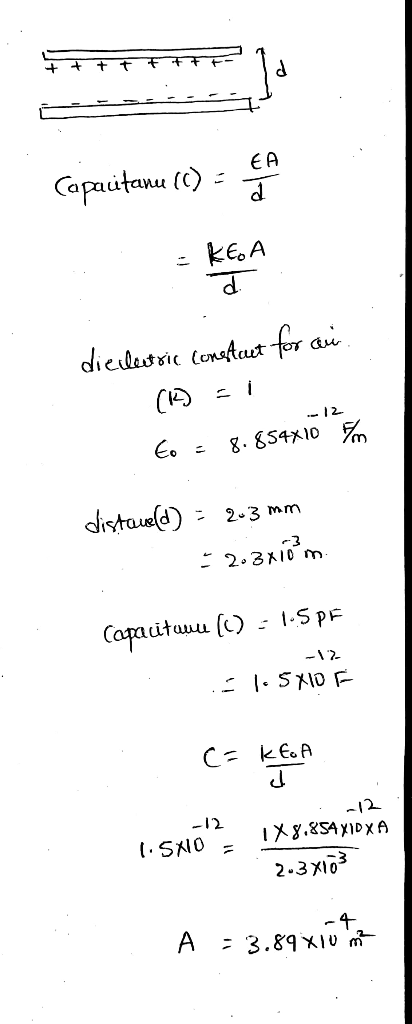 + + + + + + + + -
- - - - - - - - -
d
Capacitance (C) = ϵA / d
= kϵ₀A / d
dielectric constant for air
(K) = 1
ϵ₀ = 8.854×10⁻¹² F/m
distance(d) = 2.3 mm
= 2.3×10⁻³ m.
Capacitance (C) = 1.5 PF
= 1.5×10⁻¹² F
C = kϵ₀A / d
1.5×10⁻¹² = 1×8.854×10⁻¹²×A / 2.3×10⁻³
A = 3.89×10⁻⁴ m²